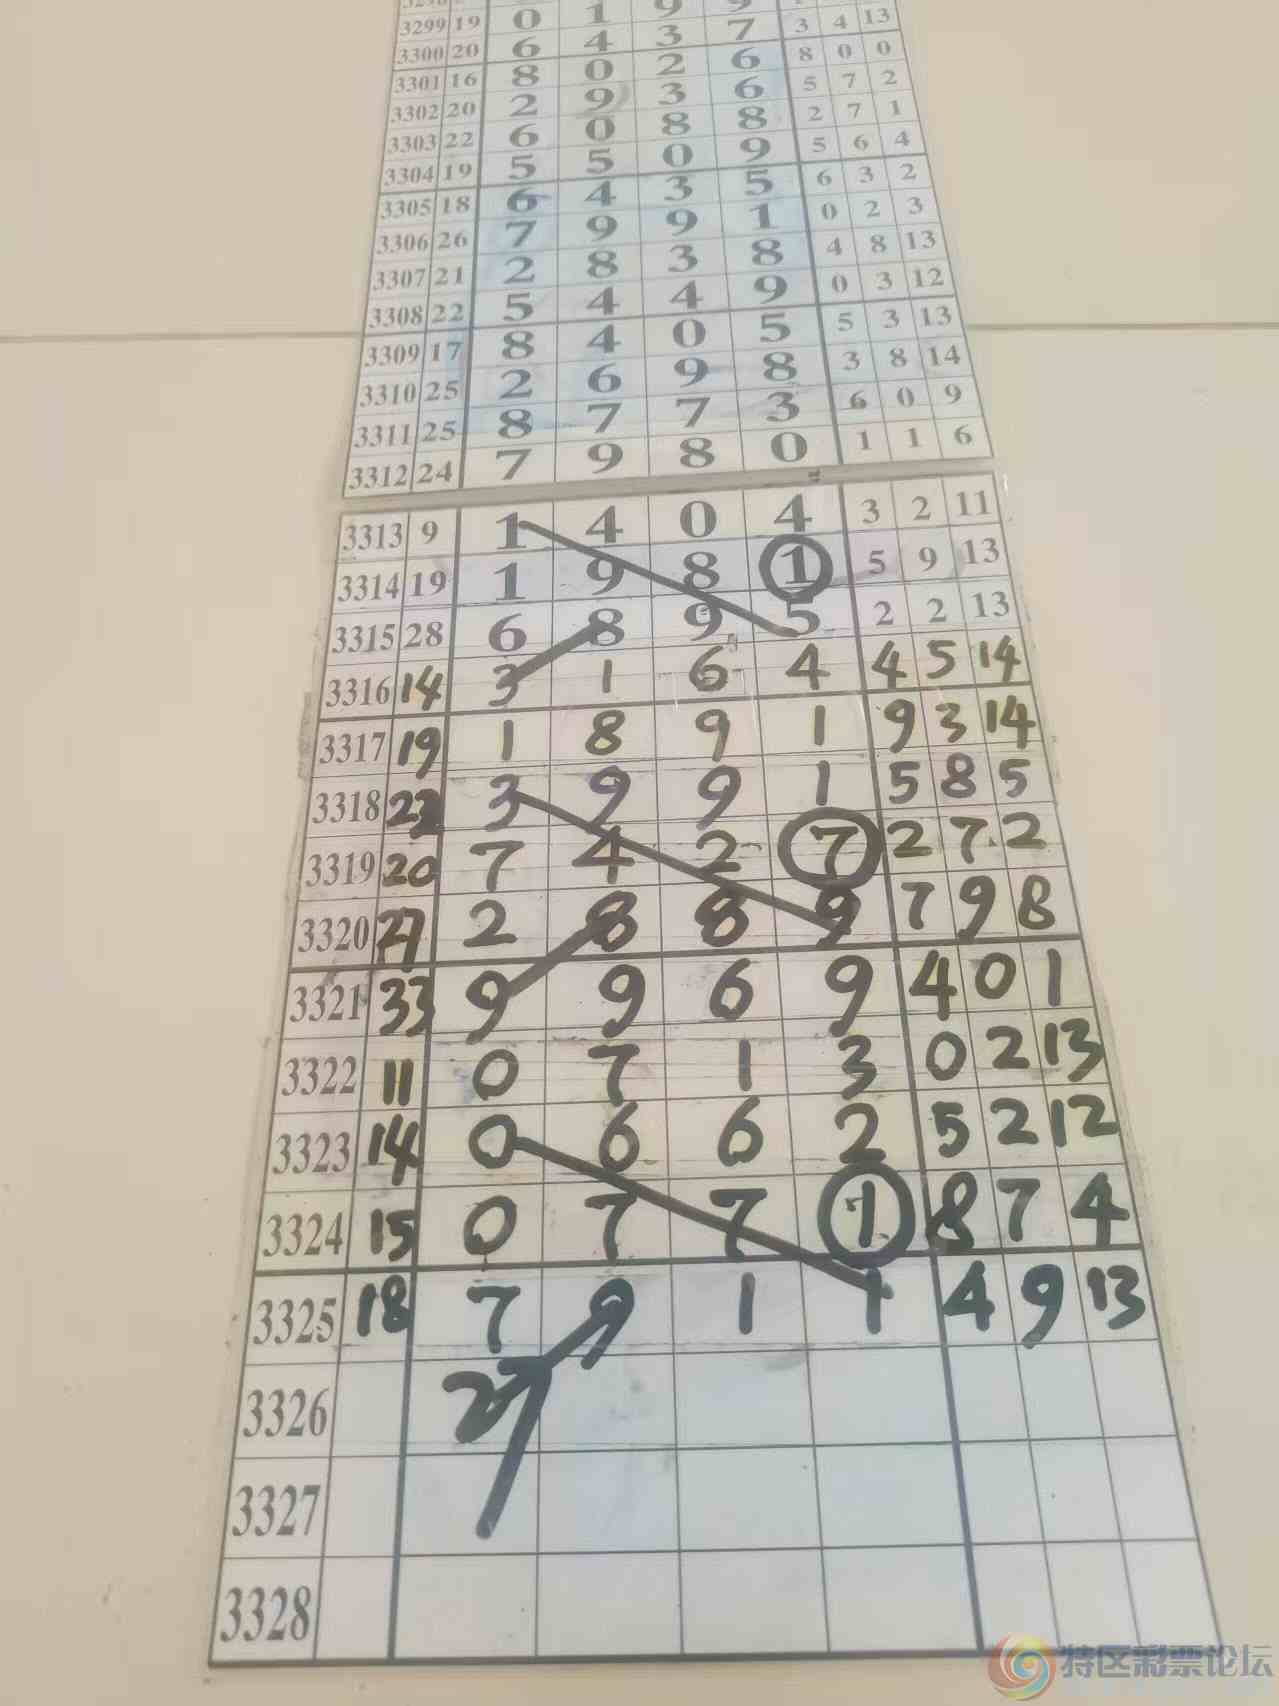 3299 19 0 1 9 9 3 4 13
3300 20 6 4 3 7 8 0 0
3301 16 8 0 2 6 5 7 2
3302 20 2 9 3 6 2 7 1
3303 22 6 0 8 8 5 6 4
3304 19 5 5 0 9 6 3 2
3305 18 6 4 3 5 0 2 3
3306 26 7 9 9 1 4 8 13
3307 21 2 8 3 8 0 3 12
3308 22 5 4 4 9 5 3 13
3309 17 8 4 0 5 3 8 14
3310 25 2 6 9 8 6 0 9
3311 25 8 7 7 3 1 1 6
3312 24 7 9 8 0
3313 9 1 4 0 4 3 2 11
3314 19 1 9 8 1 5 9 13
3315 28 6 8 9 5 2 2 13
3316 14 3 1 6 4 4 5 14
3317 19 1 8 9 1 9 3 14
3318 22 3 9 9 1 5 8 5
3319 20 7 4 2 7 2 7 2
3320 27 2 8 8 9 7 9 8
3321 33 9 9 6 9 4 0 1
3322 11 0 7 1 3 0 2 13
3323 14 0 6 6 2 5 2 12
3324 15 0 7 7 1 8 7 4
3325 18 7 9 1 1 4 9 13
3326 27
3327
3328
特区彩票论坛